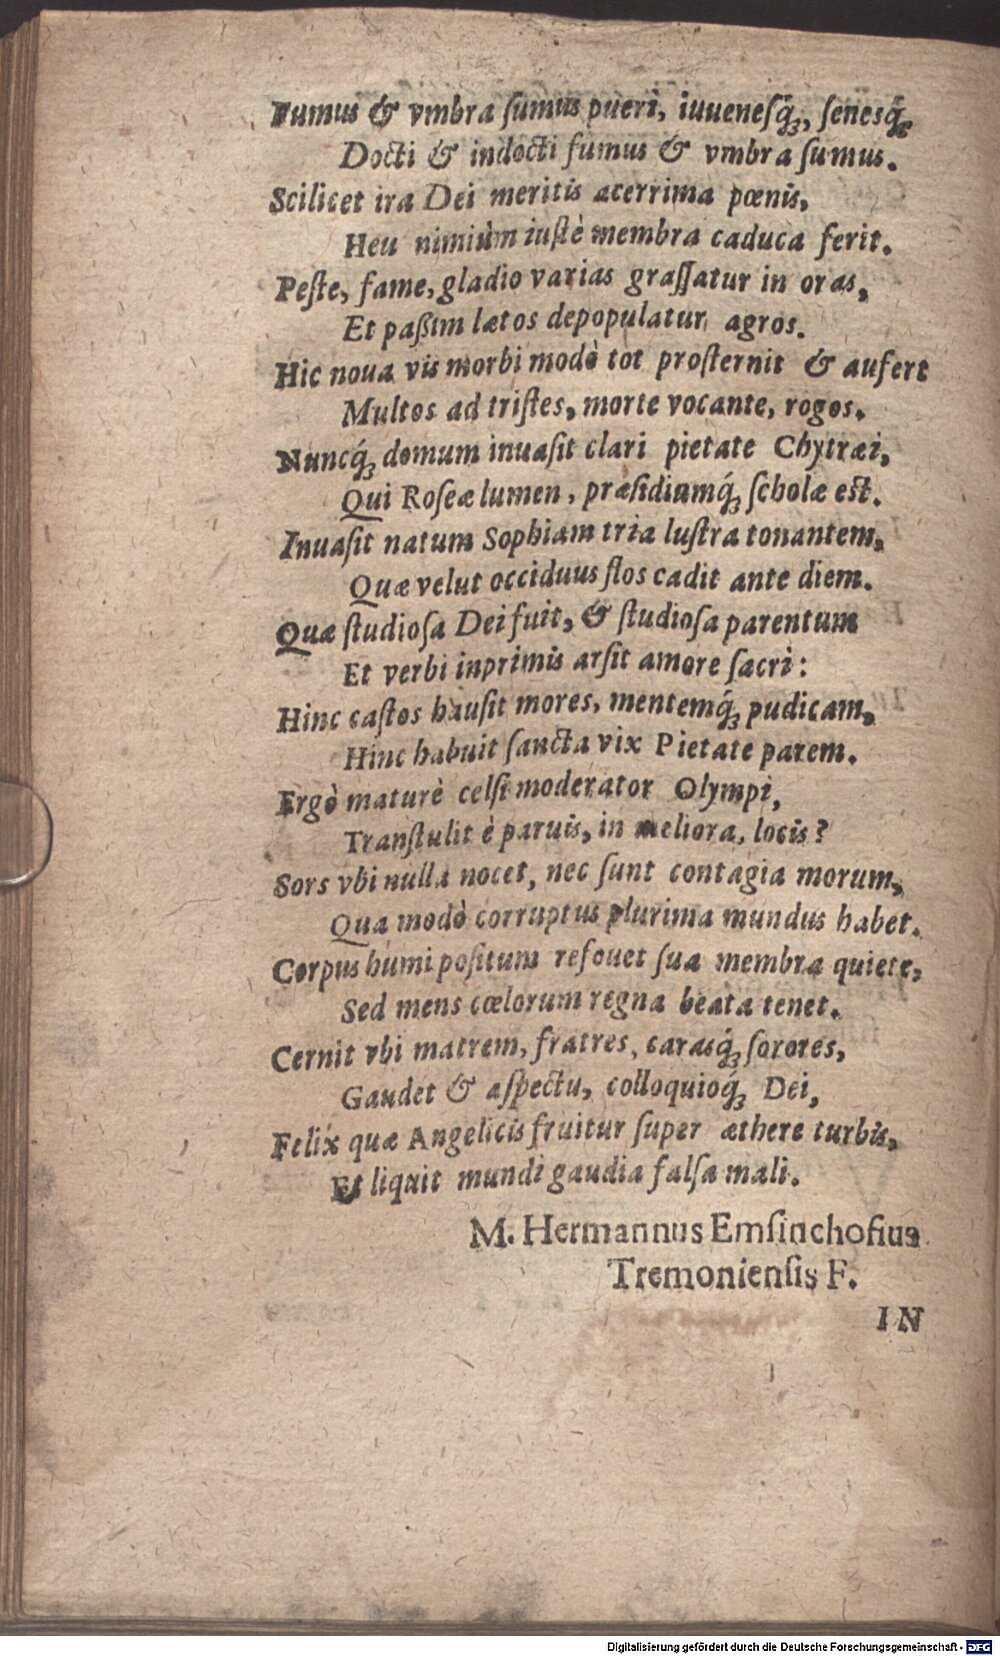 Fumus & vmbra ſumus pueri, iuueneſq́ꝫ, ſenesq́ꝫ
Docti & indocti fumus & vmbra ſumus.
Scilicet ira Dei meritis acerrima pœnis,
Heu nimiùm iuſtè membra caduca ferit.
Peſte, fame, gladio varias graſſatur in oras,
Et paßim lætos depopulatur agros.
Hic noua vis morbi modò tot proſternit & aufert
Multos ad triſtes, morte vocante, rogos.
Nuncq́ꝫ domum inuaſit clari pietate Chytræi,
Qui Roſeæ lumen, præſidiumq́ꝫ ſcholæ est.
Inuaſit natum Sophiam tria luſtra tonantem,
Quæ velut occiduus flos cadit ante diem.
Quæ ſtudioſa Dei fuit, & ſtudioſa parentum
Et verbi inprimis arſit amore ſacri:
Hinc caſtos hauſit mores, mentemq́ꝫ pudicam,
Hinc habuit ſancta vix Pietate parem.
Ergò maturè celſi moderator Olympi,
Tranſtulit è paruis, in meliora, locis?
Sors vbi nulla nocet, nec ſunt contagia morum,
Qua modò corruptus plurima mundus habet.
Corpus humi poſitum refouet ſua membra quiete,
Sed mens cœlorum regna beata tenet.
Cernit vbi matrem, fratres, carasq́ꝫ ſorores,
Gaudet & aſpectu, colloquioq́ꝫ Dei,
Felix quæ Angelicis fruitur ſuper æthere turbis,
Et liquit mundi gaudia falſa mali.
M. Hermannus Emſinchofius
Tremonienſis F.
IN
Digitalisierung gefördert durch die Deutsche Forschungsgemeinschaft - DFG